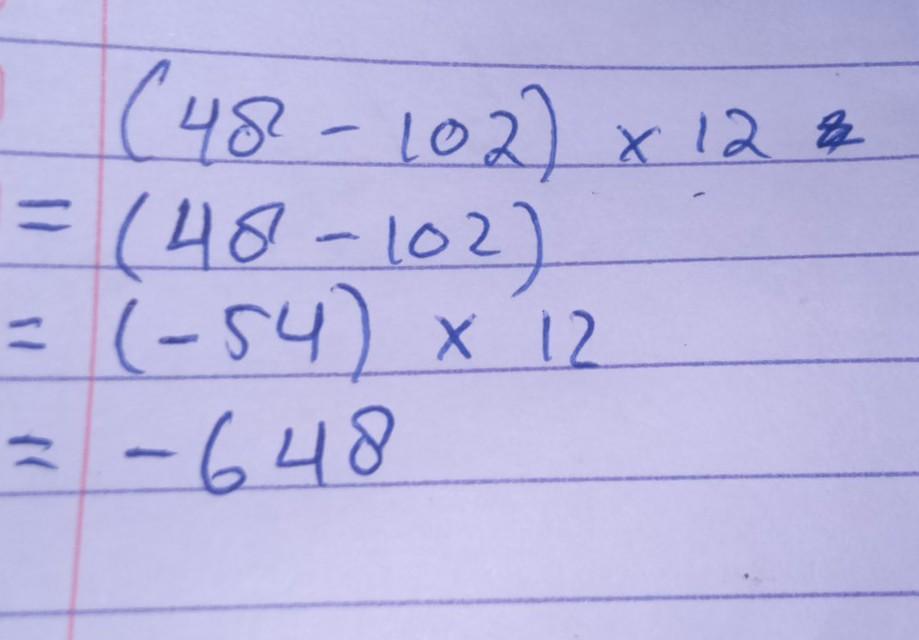 (48 - 102) x 12
= (48 - 102)
= (-54) x 12
= -648